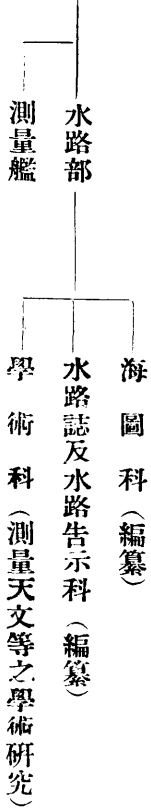 水路部
測量艦
海圖科（編纂）
水路誌及水路告示科（編纂）
學術科（測量天文等之學術硏究）